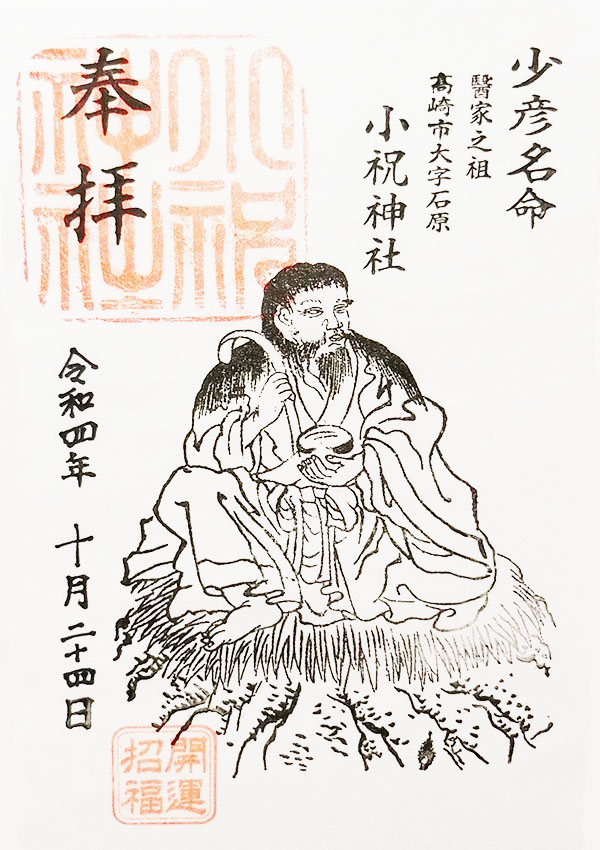 少彦名命
醫家之祖
高崎市大字石原
小祝神社
奉拝
小祝
神社
令和四年 十月二十四日
開運
招福